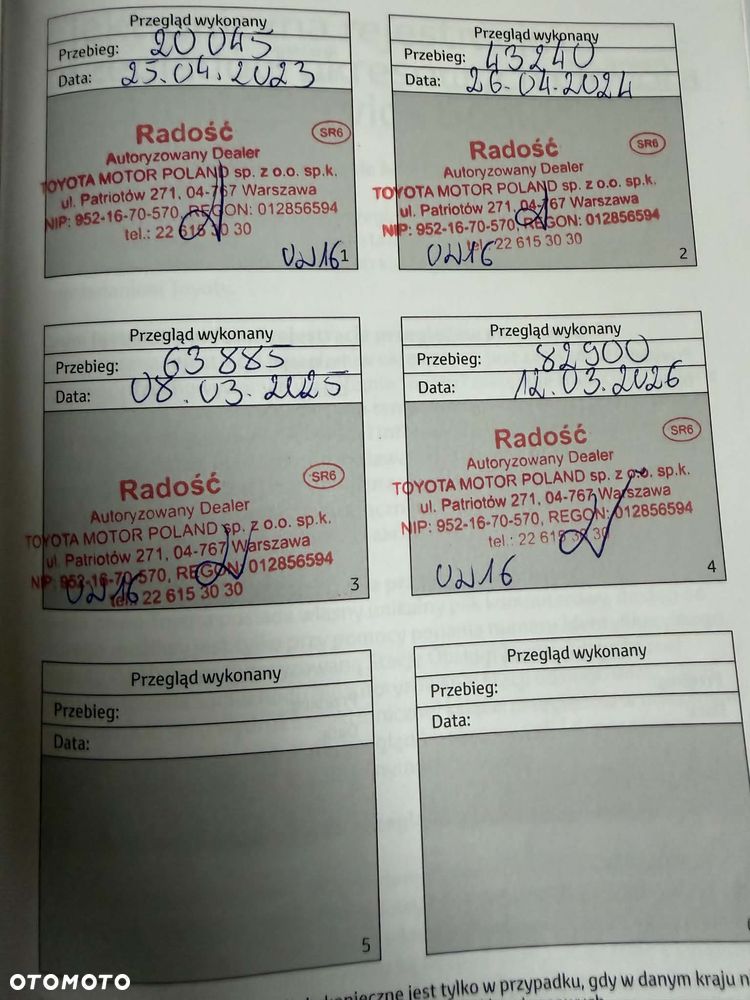 Przegląd wykonany
Przebieg: 20 045
Data: 25.04.2023
Radość
SR6
Autoryzowany Dealer
TOYOTA MOTOR POLAND sp. z o.o. sp.k.
ul. Patriotów 271, 04-767 Warszawa
NIP: 952-16-70-570, REGON: 012856594
tel.: 22 615 30 30
1
Przegląd wykonany
Przebieg: 43240
Data: 26.04.2024
Radość
SR6
Autoryzowany Dealer
TOYOTA MOTOR POLAND sp. z o.o. sp.k.
ul. Patriotów 271, 04-767 Warszawa
NIP: 952-16-70-570, REGON: 012856594
tel.: 22 615 30 30
2
Przegląd wykonany
Przebieg: 63 885
Data: 08.03.2025
Radość
SR6
Autoryzowany Dealer
TOYOTA MOTOR POLAND sp. z o.o. sp.k.
ul. Patriotów 271, 04-767 Warszawa
NIP: 952-16-70-570, REGON: 012856594
tel.: 22 615 30 30
3
Przegląd wykonany
Przebieg: 82900
Data: 12.03.2026
Radość
SR6
Autoryzowany Dealer
TOYOTA MOTOR POLAND sp. z o.o. sp.k.
ul. Patriotów 271, 04-767 Warszawa
NIP: 952-16-70-570, REGON: 012856594
tel.: 22 615 30 30
4
Przegląd wykonany
Przebieg:
Data:
5
Przegląd wykonany
Przebieg:
Data:
konieczne jest tylko w przypadku, gdy w danym kraju
OTOMOTO